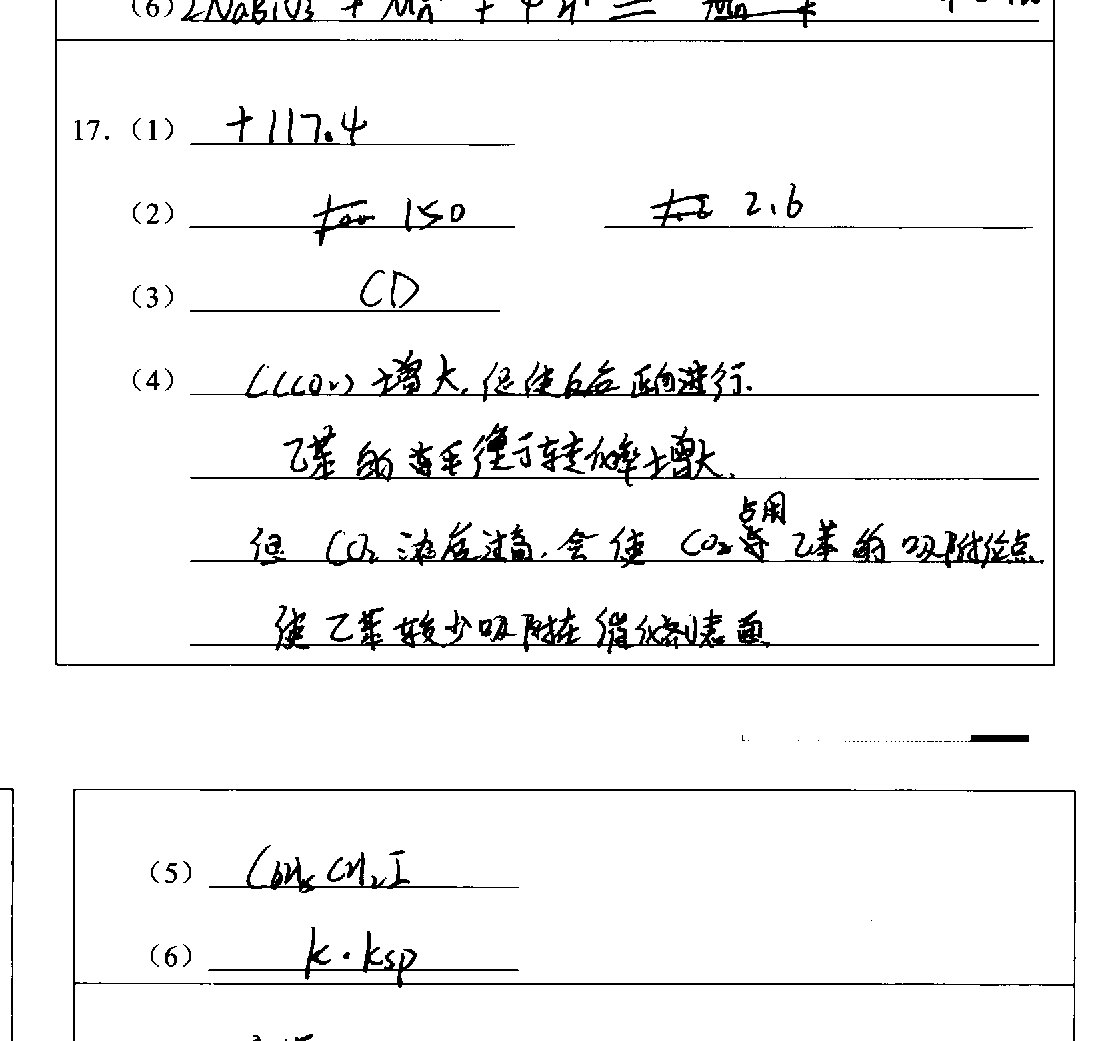 (6) 2NaBiO3 + Mn + 4H =
17. (1) +117.4
(2) 150 2.6
(3) CD
(4) C(CO₂)增大,促使反应正向进行.
乙苯的平衡转化率增大.
但 CO₂ 浓度过高,会使 CO₂占用乙苯的吸附位点
使乙苯较少吸附在催化剂表面
(5) C₆H₅CH₂I
(6) K·Ksp